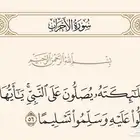 سُورَةُ الأَحْزَابِ
بِسْمِ اللَّهِ الرَّحْمَنِ الرَّحِيمِ
يُصَلُّونَ عَلَى النَّبِيِّ يَٰٓأَيُّهَا
عَلَيْهِ وَسَلِّمُوا۟ تَسْلِيمًا ۝٥٦